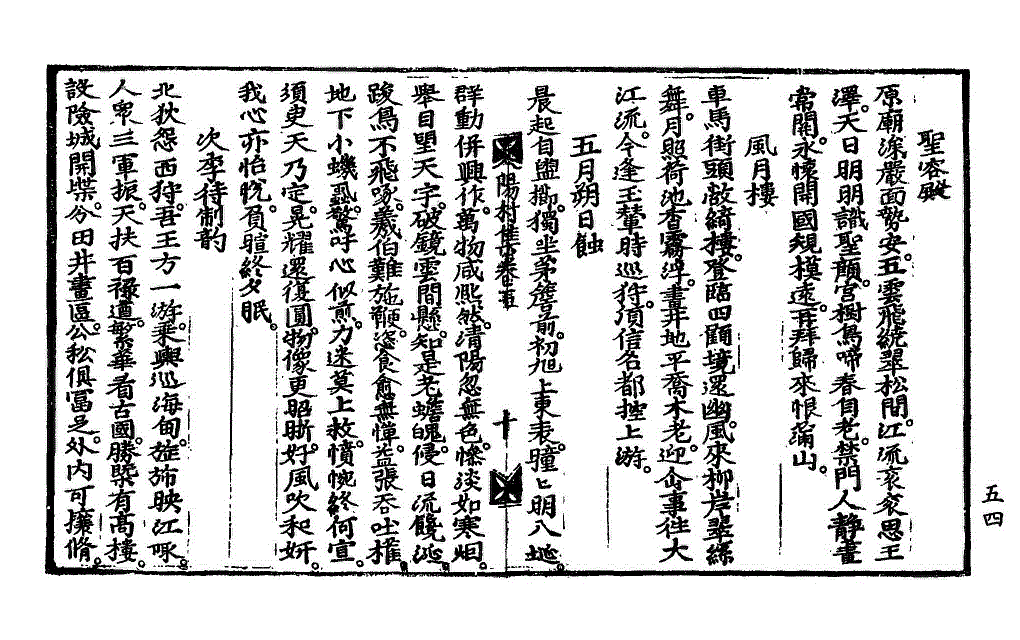 聖容殿
原廟深嚴面勢安。五雲飛繞翠松間。江流衮衮思王
澤。天日明明識聖顏。宮樹鳥啼春自老。禁門人靜晝
常關。永懷開國規模遠。再拜歸來恨滿山。
風月樓
車馬街頭敞綺樓。登臨四顧境還幽。風來柳岸翠絲
舞。月照荷池香霧浮。畫井地平喬木老。迎 事往大
江流。今逢玉輦時巡狩。須信名都控上游。
五月朔日蝕
晨起自盥櫛。獨坐茅簷前。初旭上東表。曈々明八埏。
陽村集卷之五
十
群動併興作。萬物咸熙然。清陽忽無色。慘淡如寒烟。
舉目望天宇。破鏡雲間懸。知是老蟾魄。侵日流饞涎。
踆烏不飛啄。羲伯難施鞭。恣食愈無憚。益張吞吐權。
地下小蟣蝨。驚呼心似煎。力迷莫上救。憤惋終何宣。
須臾天乃定。晃耀還復圓。物像更昭晰。好風吹和妍。
我心亦怡悅。負暄終夕眠。
次李待制韵
北狄怨西狩。吾王方一游。乘輿巡海甸。旌旆映江 。
人衆三軍振。天扶百祿遒。繁華看古國。勝槩有高樓。
設險城開堞。分田井畫區。公私俱富足。外內可攘脩。
五四